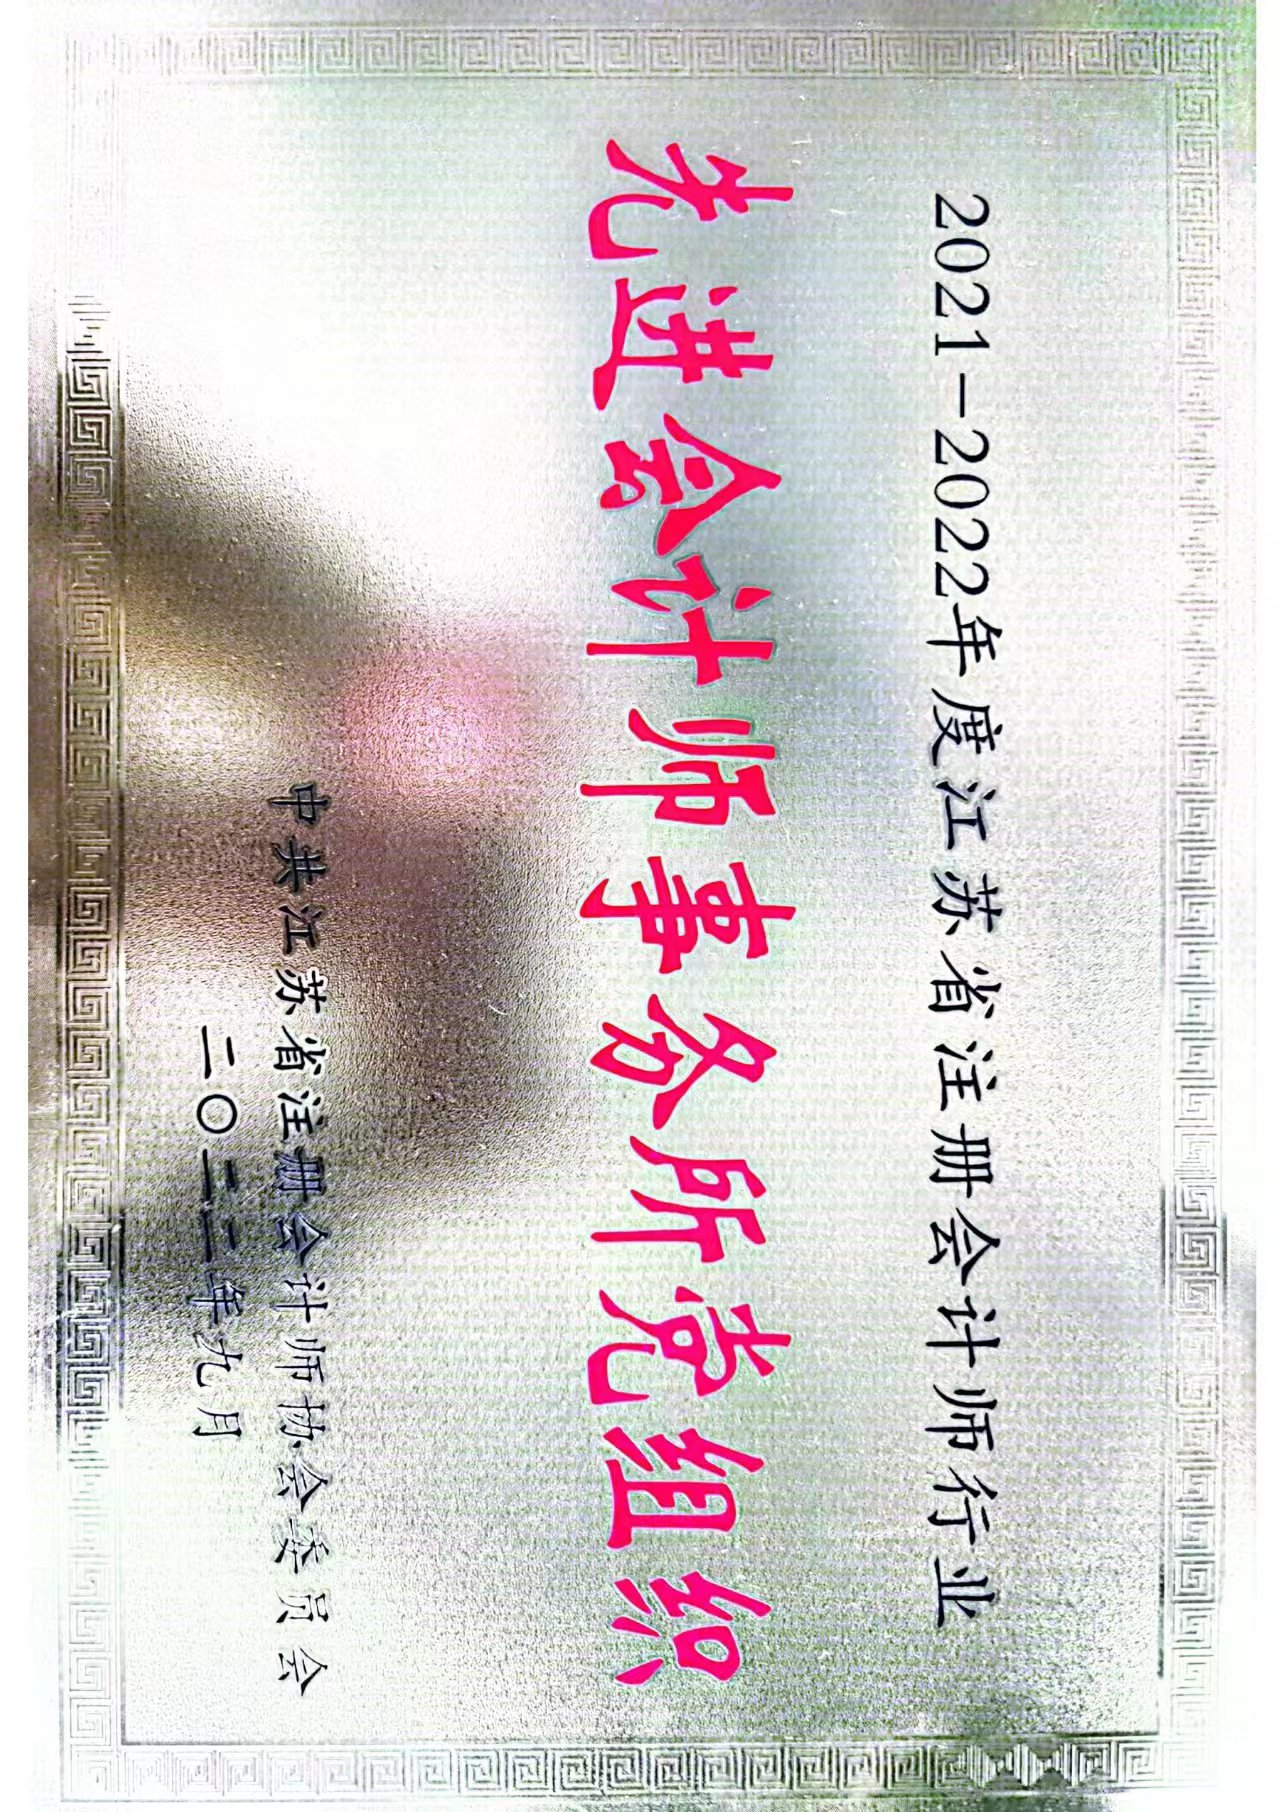 2021－2022年度江苏省注册会计师行业
先进会计师事务所党组织
中共江苏省注册会计师协会委员会
二〇二三年九月